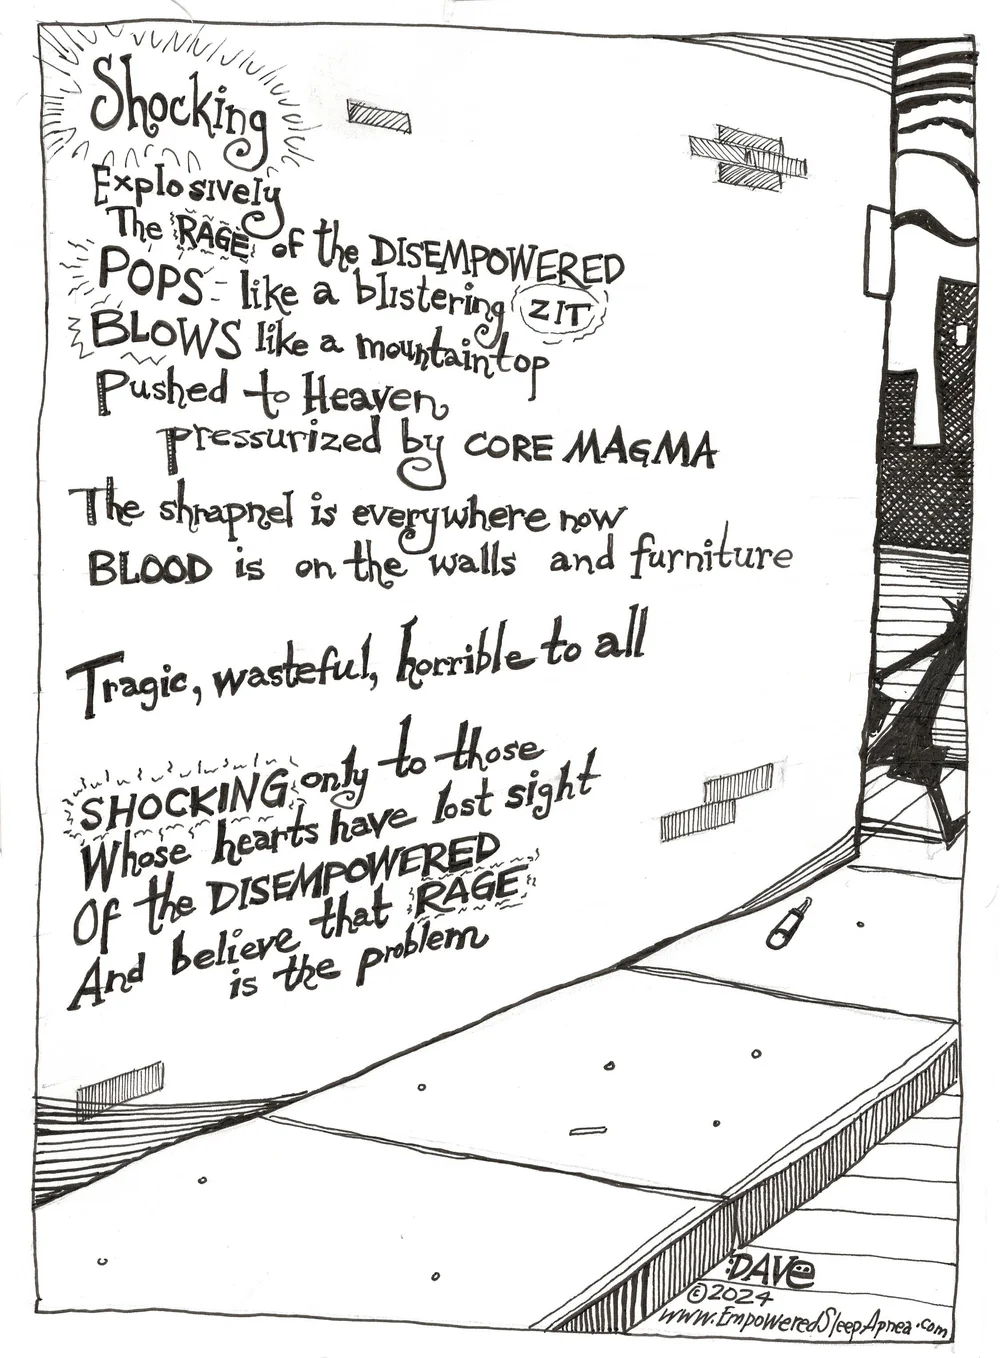 Shocking
Explosively
The RAGE of the DISEMPOWERED
POPS - like a blistering ZIT
BLOWS like a mountaintop
Pushed to Heaven
pressurized by CORE MAGMA
The shrapnel is everywhere now
BLOOD is on the walls and furniture
Tragic, wasteful, horrible to all
SHOCKING only to those
Whose hearts have lost sight
Of the DISEMPOWERED
And believe that RAGE
is the problem
:DAVe
©2024
www.EmpoweredSleepApnea.com